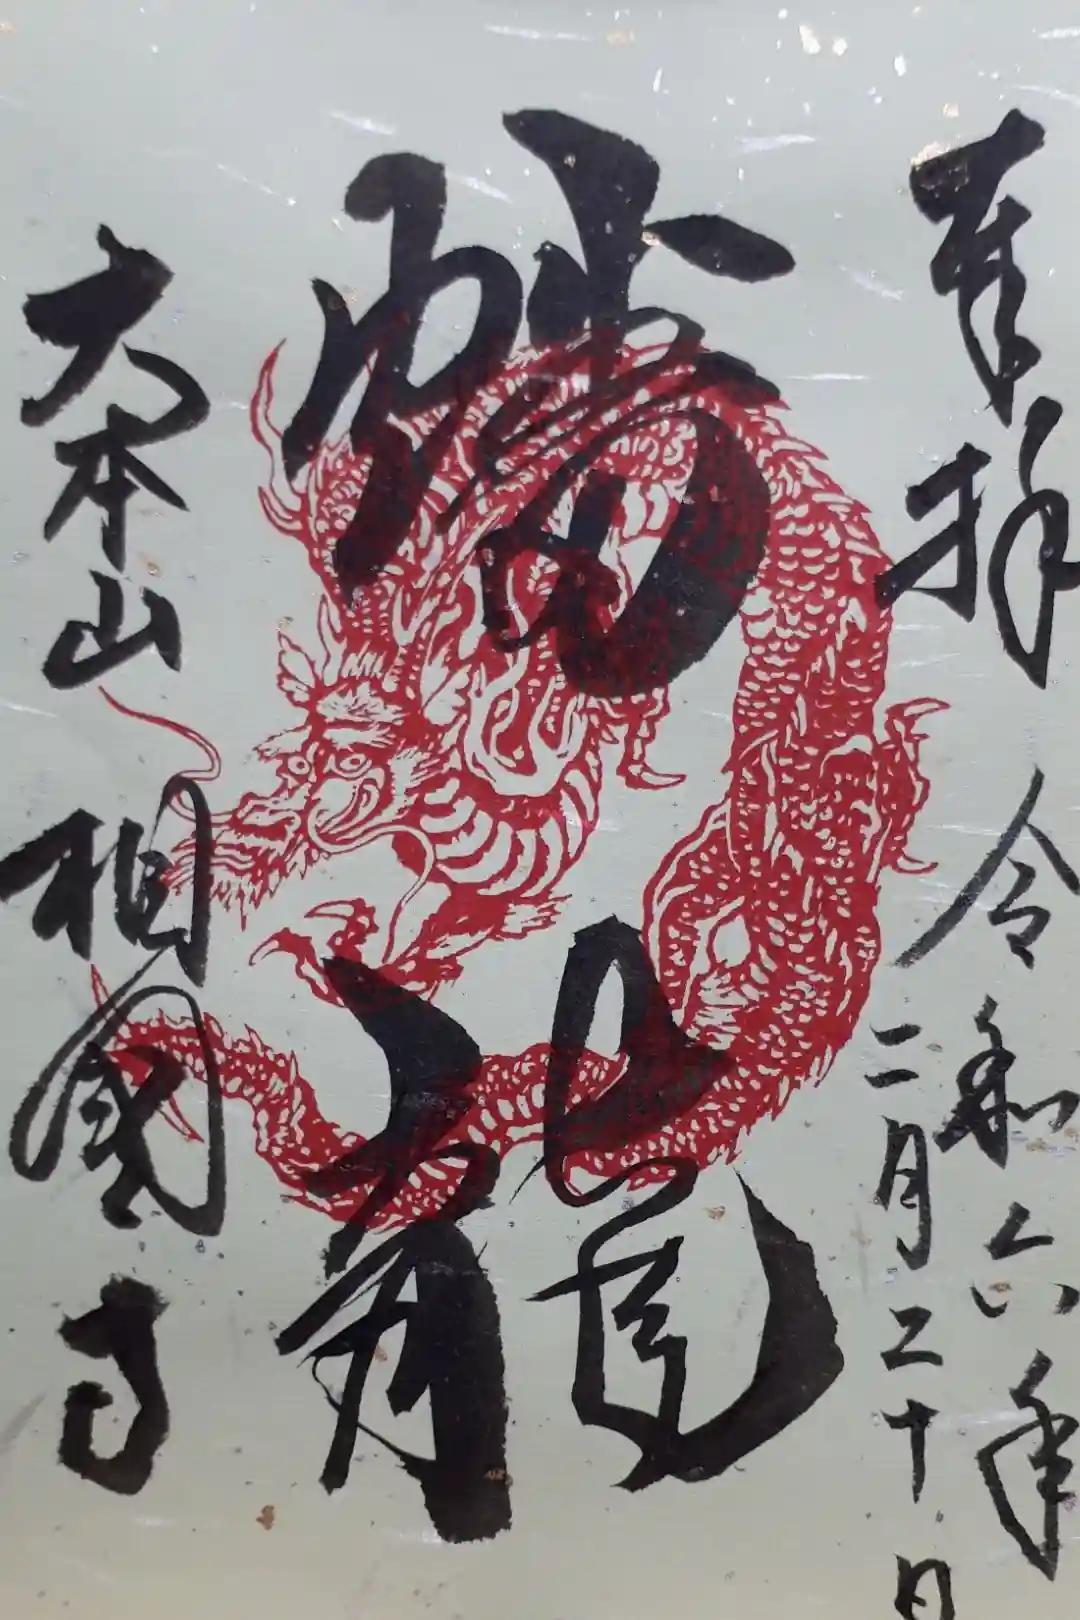 奉拝
令和六年
二月二十日
蟠龍
大本山
相國寺